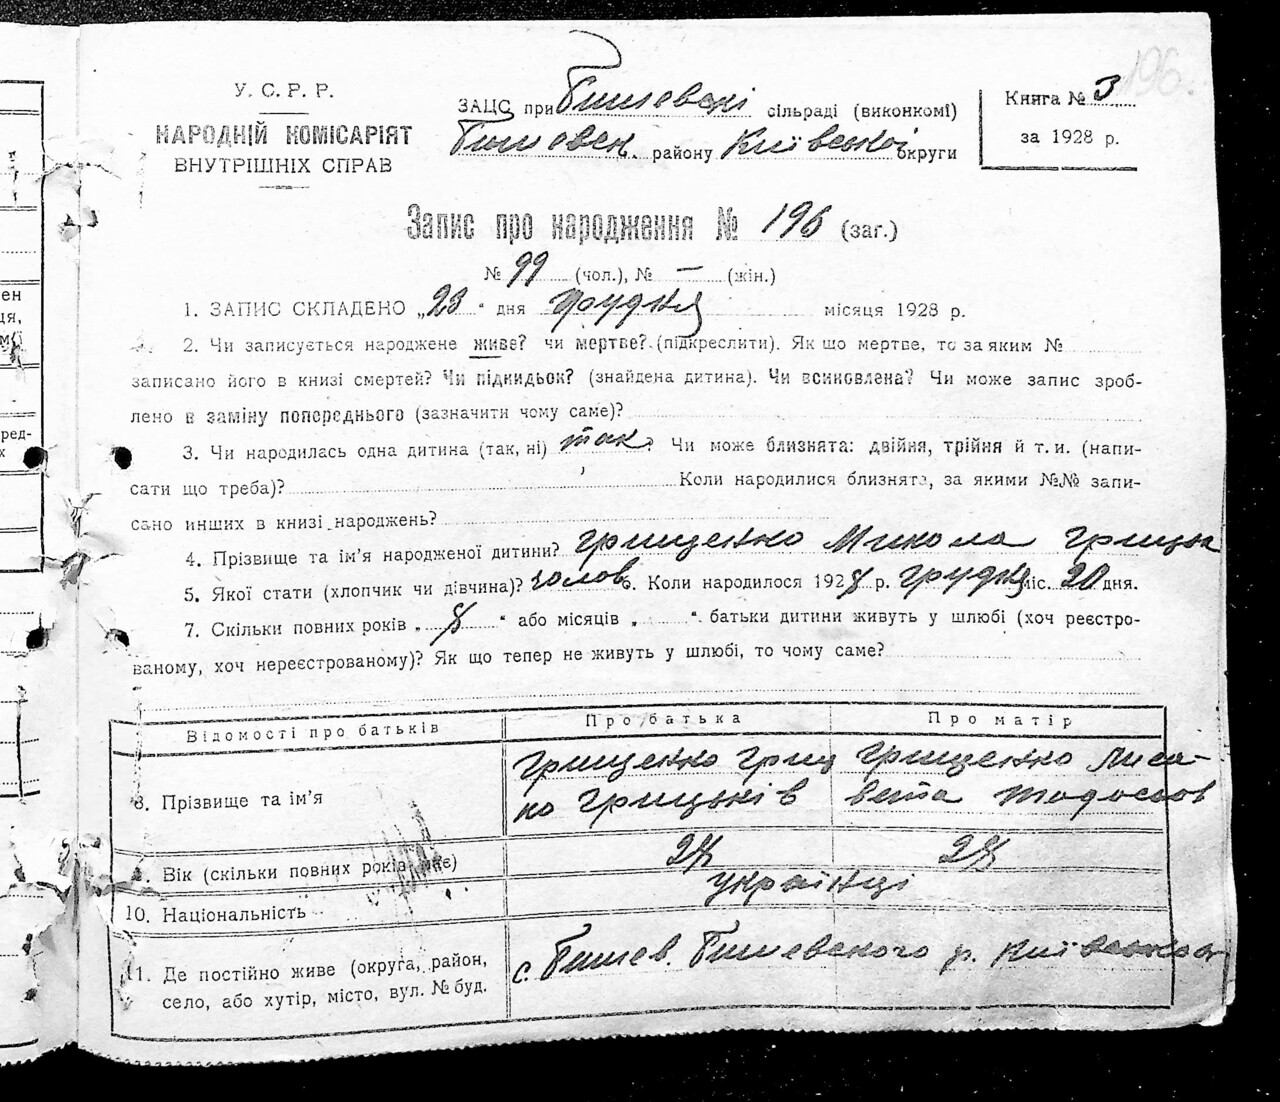 196.
У. С. Р. Р.
НАРОДНІЙ КОМІСАРІЯТ
ВНУТРІШНІХ СПРАВ
ЗАЦС при Бишевскі сільраді (виконкомі)
Бишевск. району Київської округи
Книга № 3
за 1928 р.
Запис про народження № 196 (заг.)
№ 99 (чол.), № — (жін.)
1. ЗАПИС СКЛАДЕНО „23“ дня Грудня місяця 1928 р.
2. Чи записується народжене живе? чи мертве? (підкреслити). Як що мертве, то за яким №
записано його в книзі смертей? Чи підкидьок? (знайдена дитина). Чи всиновлена? Чи може запис зроб-
лено в заміну попереднього (зазначити чому саме)?
3. Чи народилась одна дитина (так, ні) так? Чи може близнята: двійня, трійня й т. и. (напи-
сати що треба)? Коли народилися близнята, за якими №№ запи-
сано инших в книзі народжень?
4. Прізвище та ім’я народженої дитини? Грищенко Микола Грицьк
5. Якої стати (хлопчик чи дівчина)? чолов 6. Коли народилося 1928 р. Грудня міс. 20 дня.
7. Скільки повних років „8“ або місяців „ “ батьки дитини живуть у шлюбі (хоч реєстро-
ваному, хоч нереєстрованому)? Як що тепер не живуть у шлюбі, то чому саме?
Відомості про батьків Про батька Про матір
8. Прізвище та ім’я Грищенко Гриц Грищенко Лиса-
ко Грицьків вета Тодосьов
9. Вік (скільки повних років має) 28
10. Національність українці
11. Де постійно живе (округа, район,
село, або хутір, місто, вул. № буд.
с. Бишев. Бишевского р. Київської
ен
ця,
ред-
х